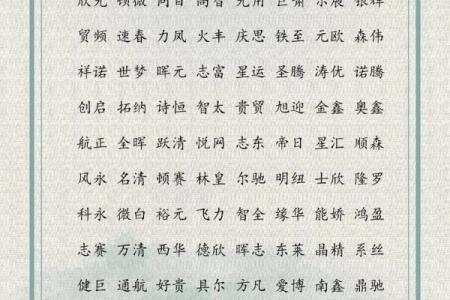 贸频 速春 力凤 火丰 庆思 铁至 元欧 森伟
祥诺 世梦 晖元 志富 星运 圣腾 涛优 诺腾
创启 拓纳 诗恒 智太 贵贸 旭迎 金鑫 奥鑫
航正 全晖 跃清 悦网 志东 帝日 星汇 顺森
风永 名清 顿赛 林皇 尔驰 明纽 士欣 隆罗
科永 微白 裕元 飞力 智全 缘华 能娇 鸿盈
志赛 万清 西华 德欣 晖志 东莱 晶精 系丝
健巨 通航 好贵 具尔 方凡 爱博 南鑫 鼎驰